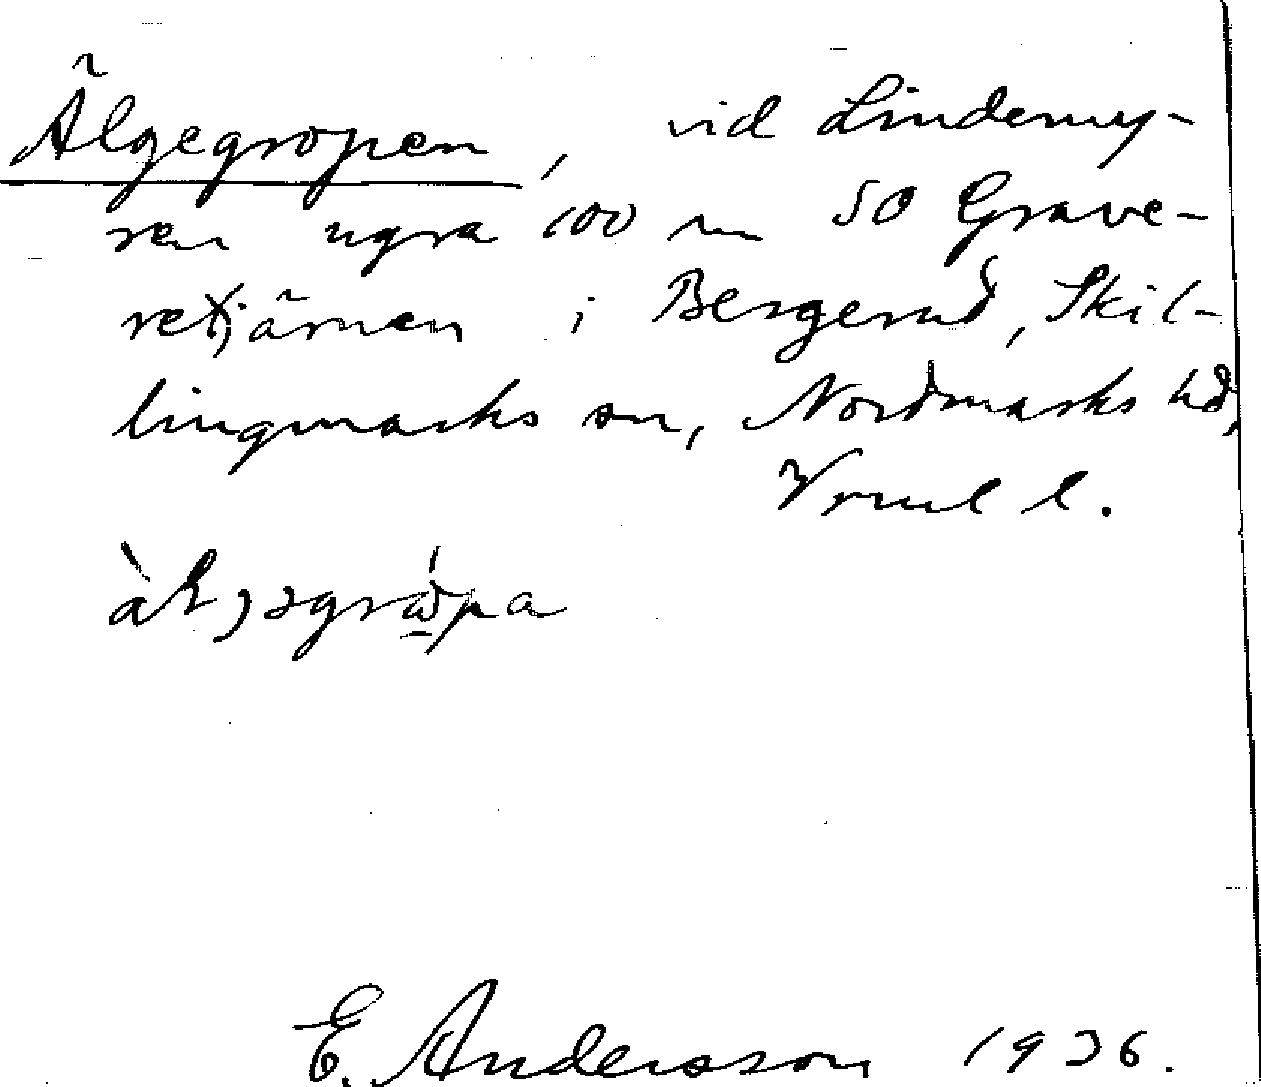 Älgegropen, vid Lindemy-
ren ngra 100 m SO Grave-
retjärnen i Bergerud, Skil-
lingmarks sn, Nordmarks hd,
Vrml l.
E. Andersson 1936.